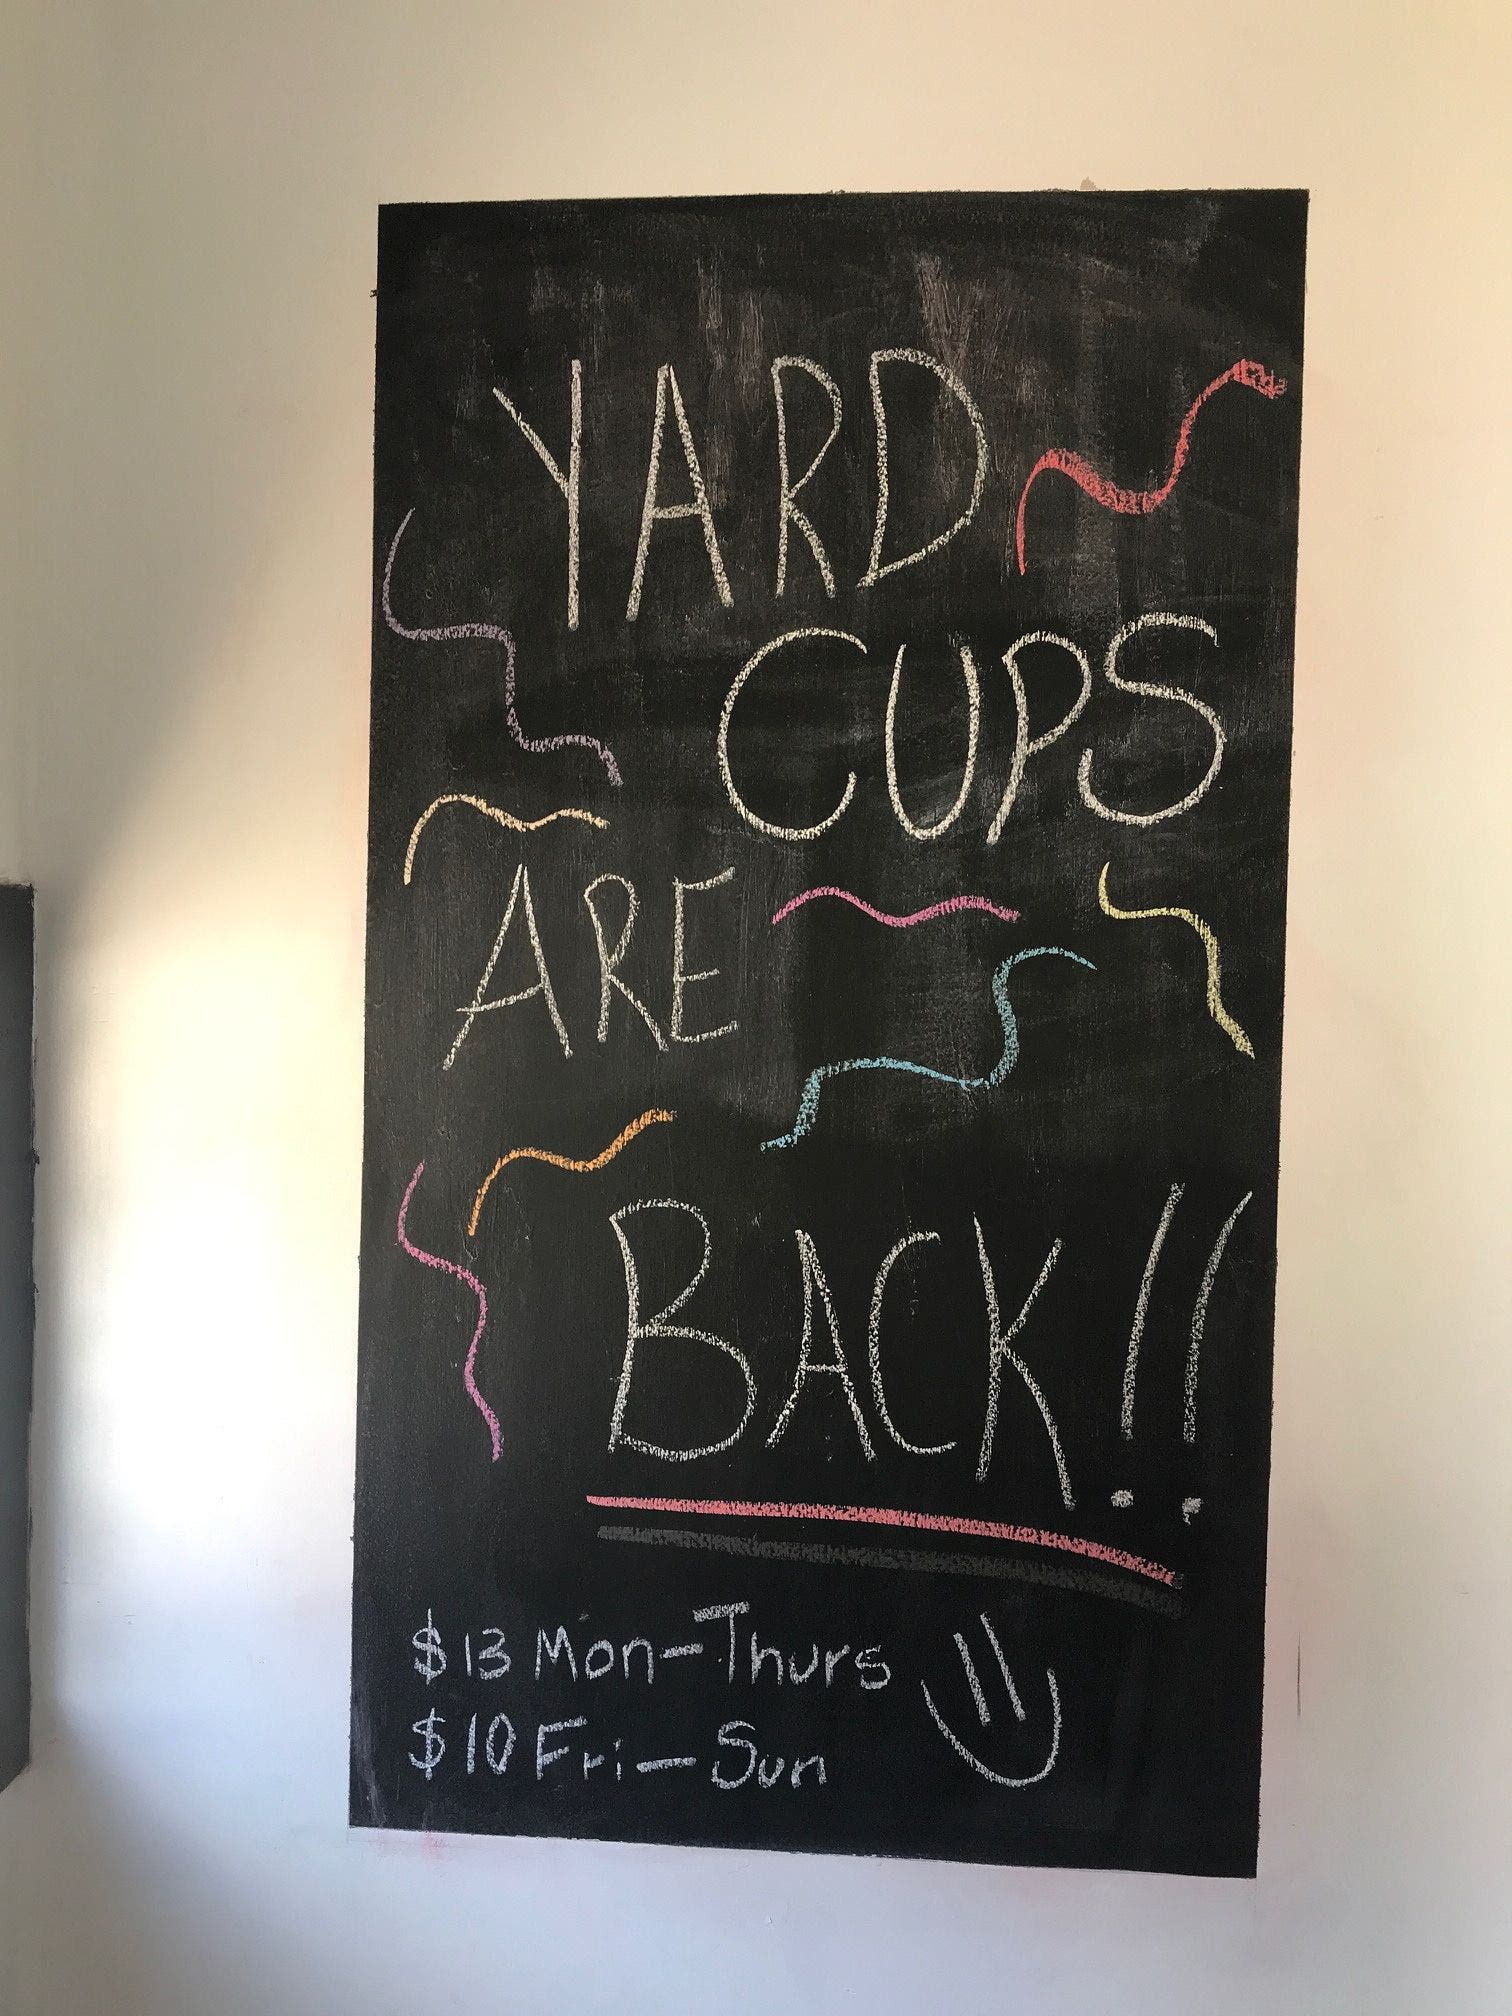 YARD
CUPS
ARE
BACK!!
$13 Mon-Thurs
$10 Fri-Sun